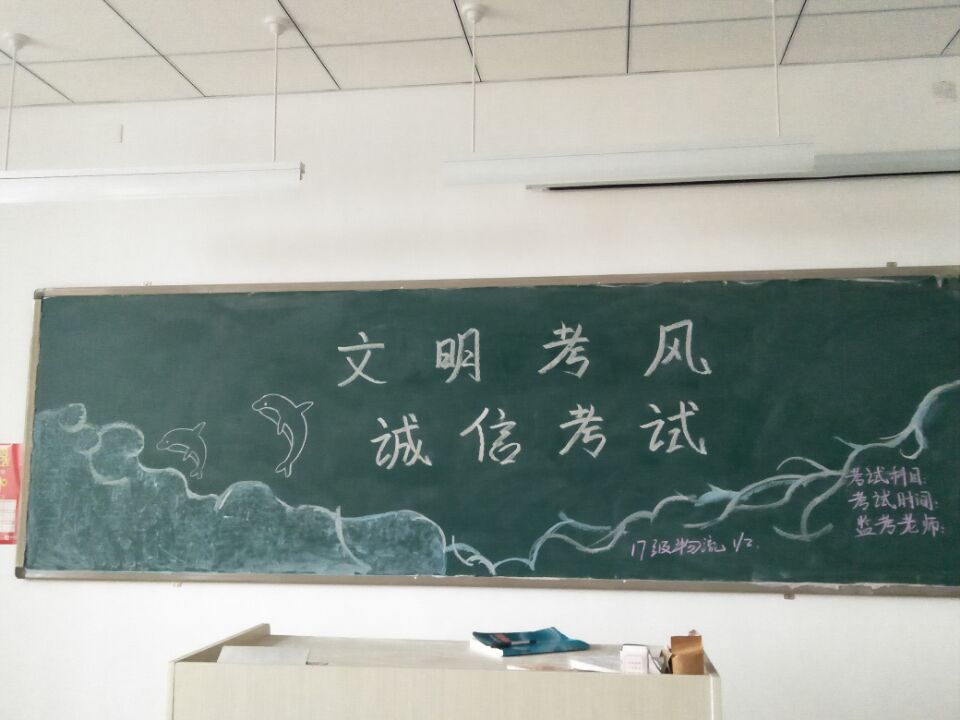 文明考风
诚信考试
考试科目:
考试时间:
监考老师:
17级物流 1/2.